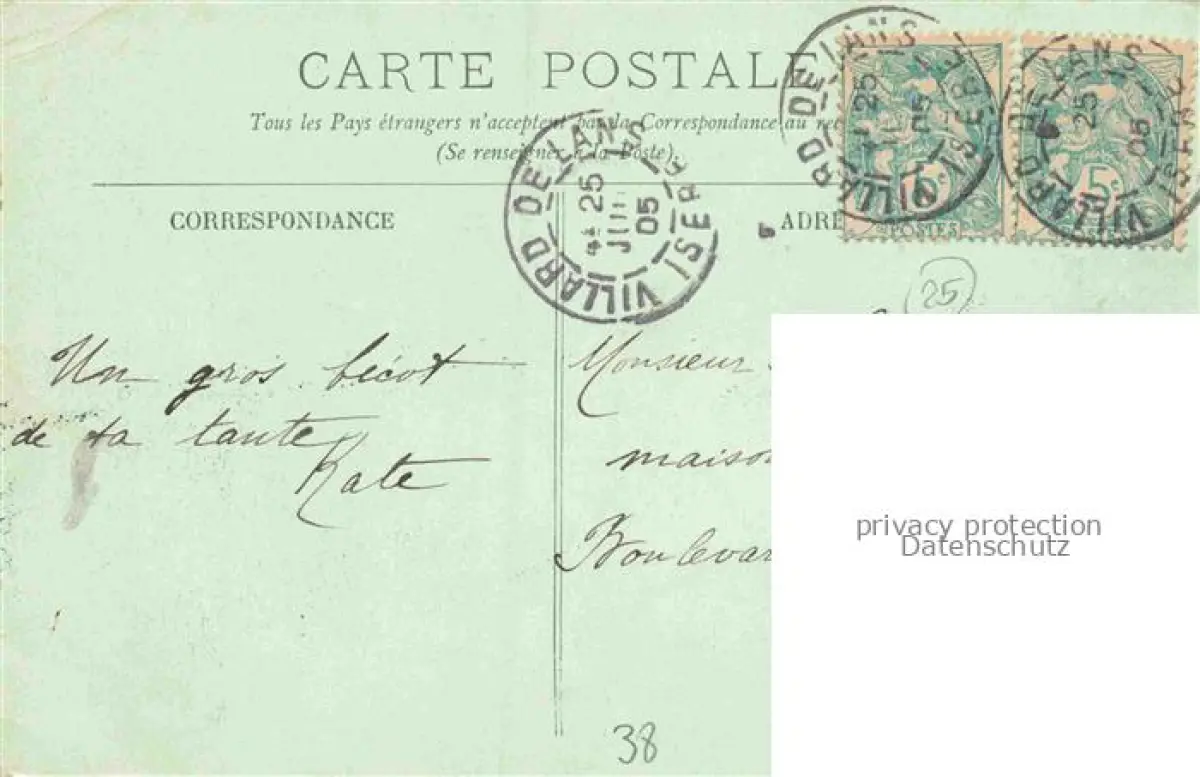 CARTE POSTALE
Tous les Pays étrangers n'acceptent pas la Correspondance au rec
(Se renseigner à la Poste)
VILLARD DE LANS ISÈRE
25
JUIL
05
VILLARD DE LANS ISÈRE
25
05
5c
POSTES
VILLARD DE LANS ISÈRE
25
05
5c
CORRESPONDANCE
ADRE
25
Un gros bécot
de ta tante
Kate
Monsieur
maison
Boulevar
privacy protection
Datenschutz
38